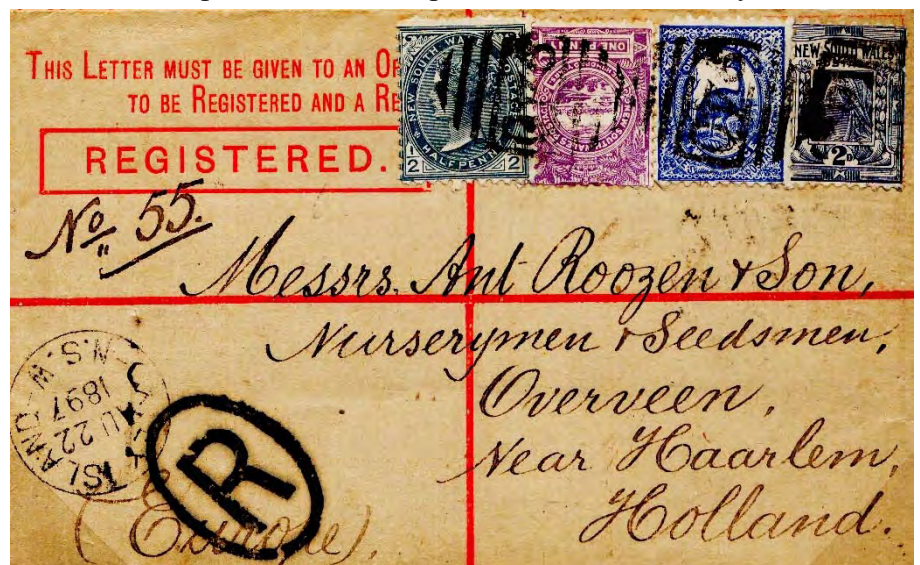 THIS LETTER MUST BE GIVEN TO AN
TO BE REGISTERED AND A
REGISTERED.
NEW SOUTH WALES POSTAGE
HALFPENNY
1/2 1/2
ONE PENNY
NEW SOUTH WALES
2D
No. 55.
Messrs. Ant Roozen & Son,
Nurserymen & Seedsmen,
Overveen,
Near Haarlem,
Holland.
(Europe),
ISLAND N.S.W
AU 22
1897
R